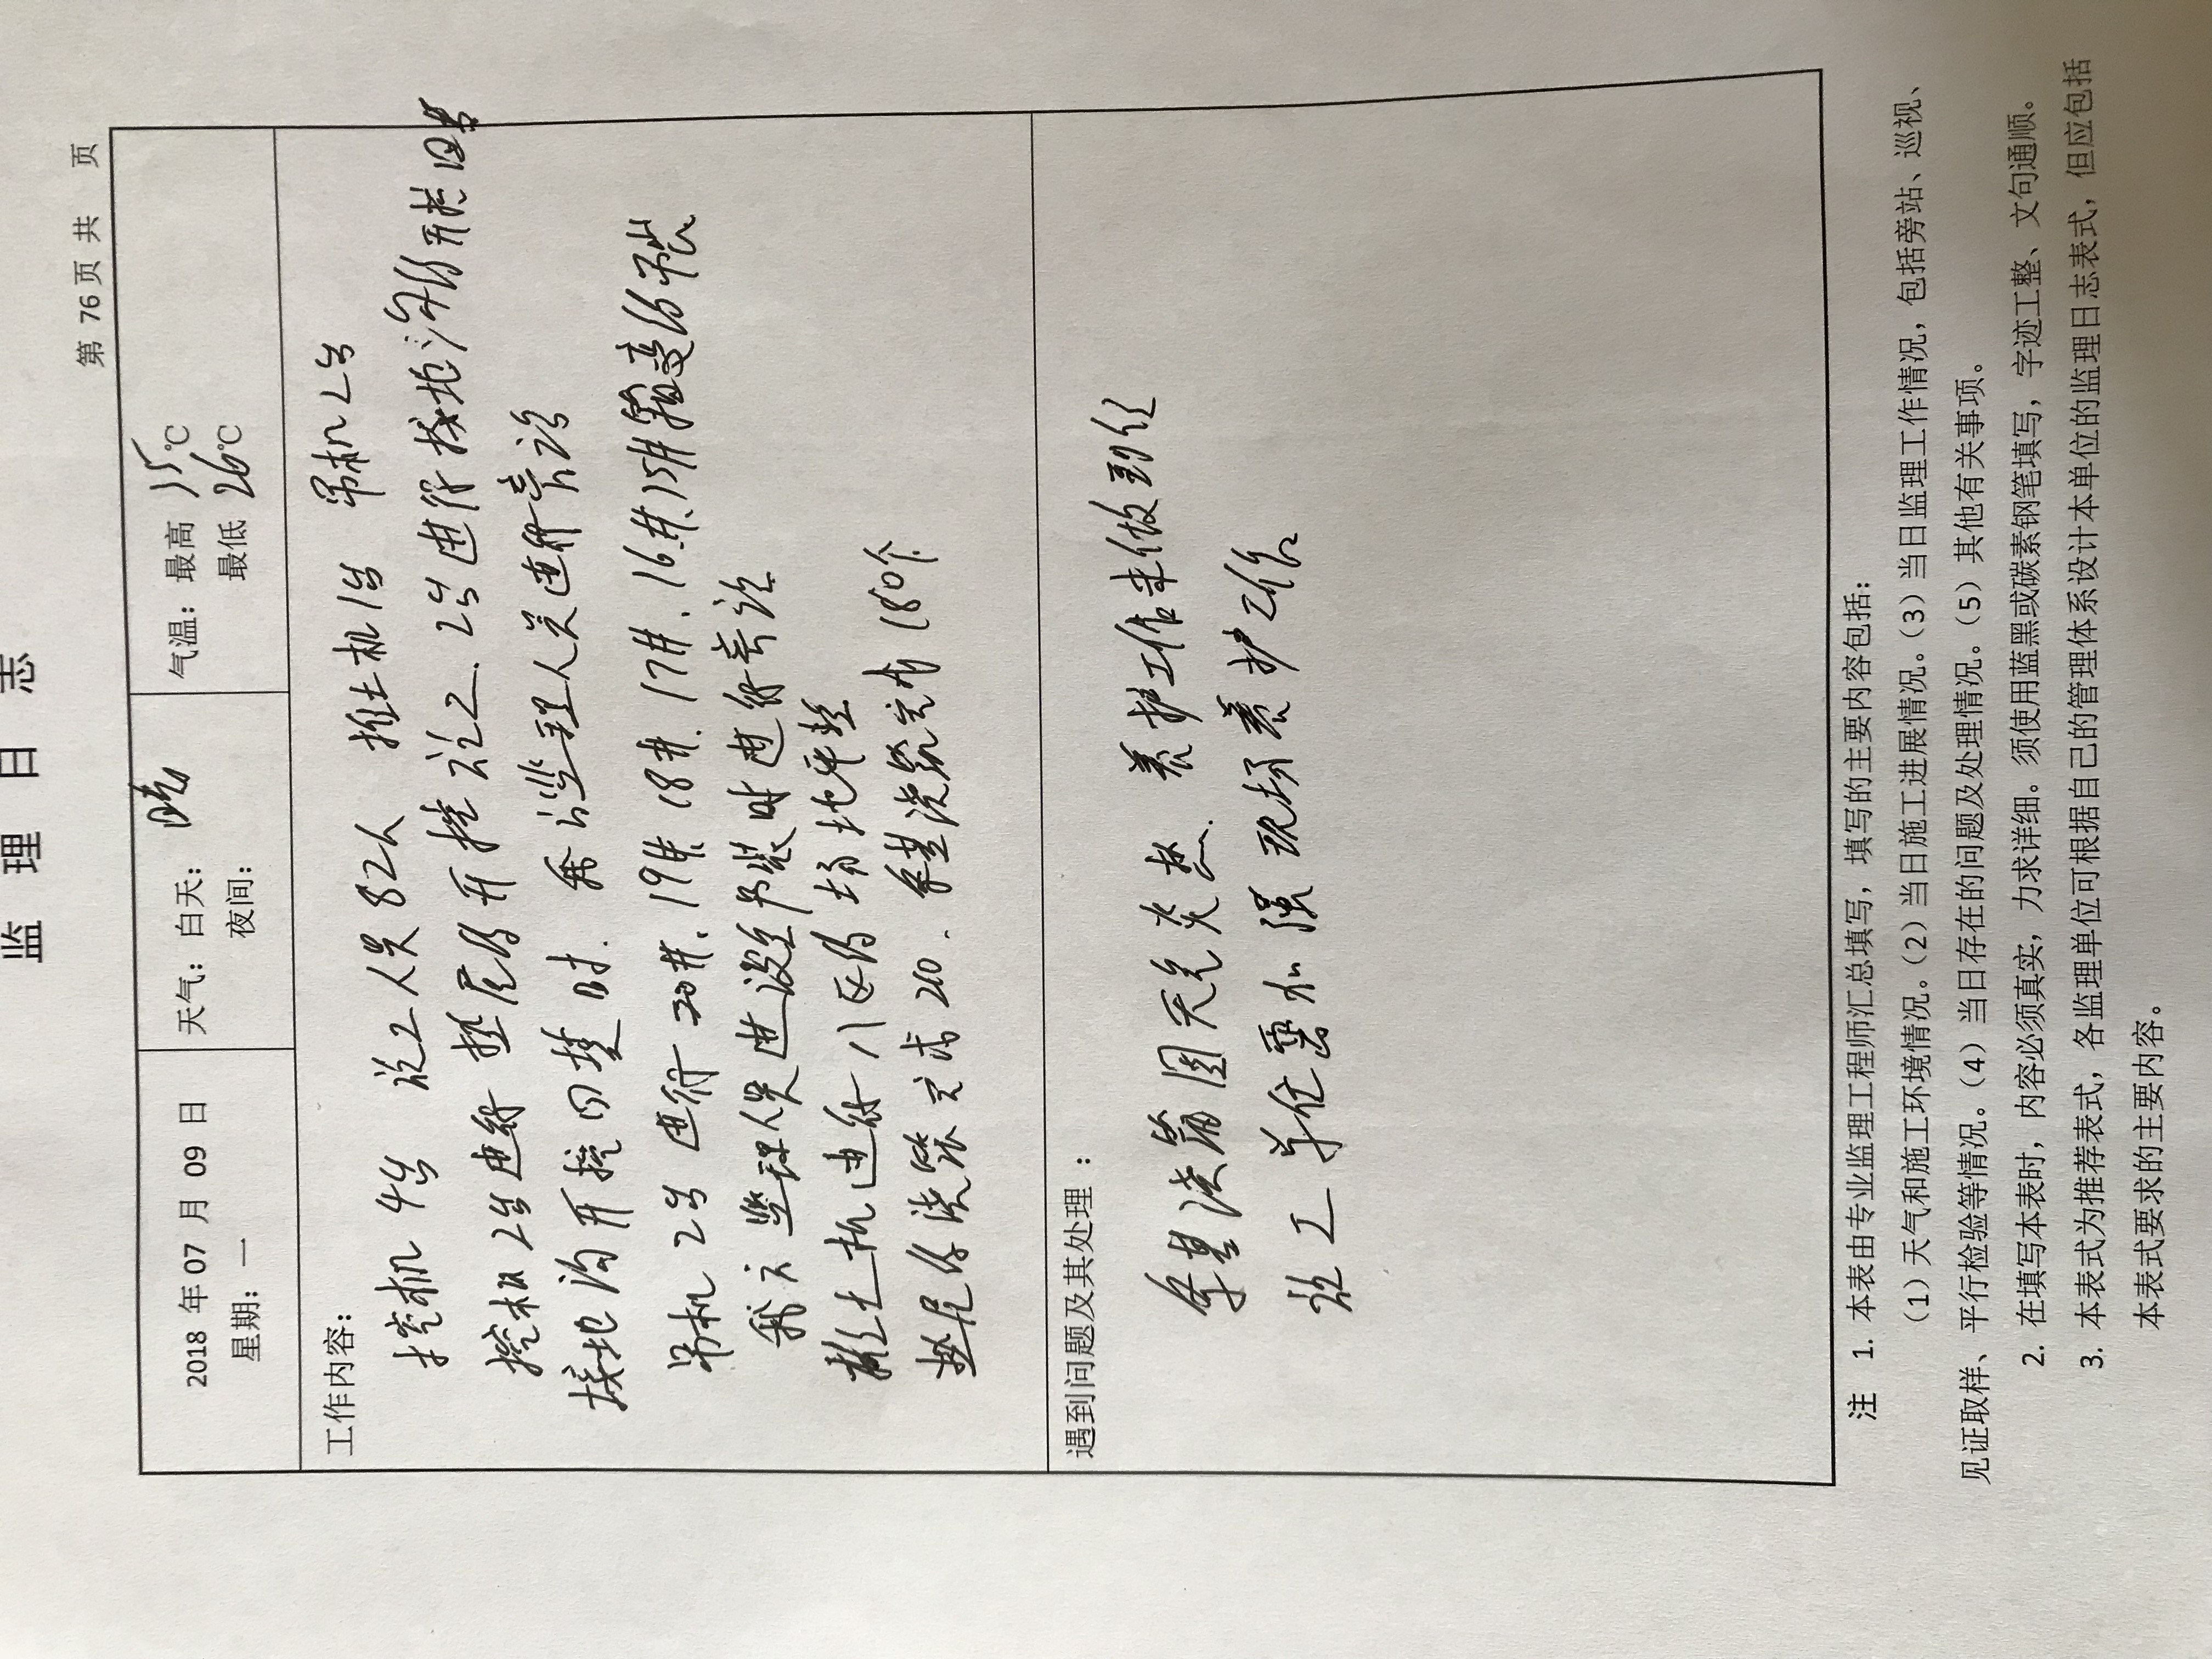 监 理 日 志
第 76页 共 页
2018 年 07 月 09 日
星期：一
天气：白天：晴
夜间：
气温：最高 35℃
最低 26℃
工作内容：
挖机 4台 施工人员 82人 推土机 1台 吊机 2台
挖机 2台进行 基层的开挖施工. 2台进行接地沟的开挖回填
接地沟开挖回填时. 我司监理人员进行旁站
吊机 2台 进行 20#. 19#. 18#. 17#. 16#. 15#箱变的吊装
我方监理人员进设至吊装时进行旁站
推土机进行八区的场地平整
基层的浇筑方式 20. 承基浇筑完成 180个
遇到问题及其处理：
承基浇筑因天气炎热. 养护工作未做到位
施工单位需加强现场养护工作
注 1. 本表由专业监理工程师汇总填写，填写的主要内容包括：
（1）天气和施工环境情况。（2）当日施工进展情况。（3）当日监理工作情况，包括旁站、巡视、
见证取样、平行检验等情况。（4）当日存在的问题及处理情况。（5）其他有关事项。
2. 在填写本表时，内容必须真实，力求详细。须使用蓝黑或碳素钢笔填写，字迹工整、文句通顺。
3. 本表式为推荐表式，各监理单位可根据自己的管理体系设计本单位的监理日志表式，但应包括
本表式要求的主要内容。